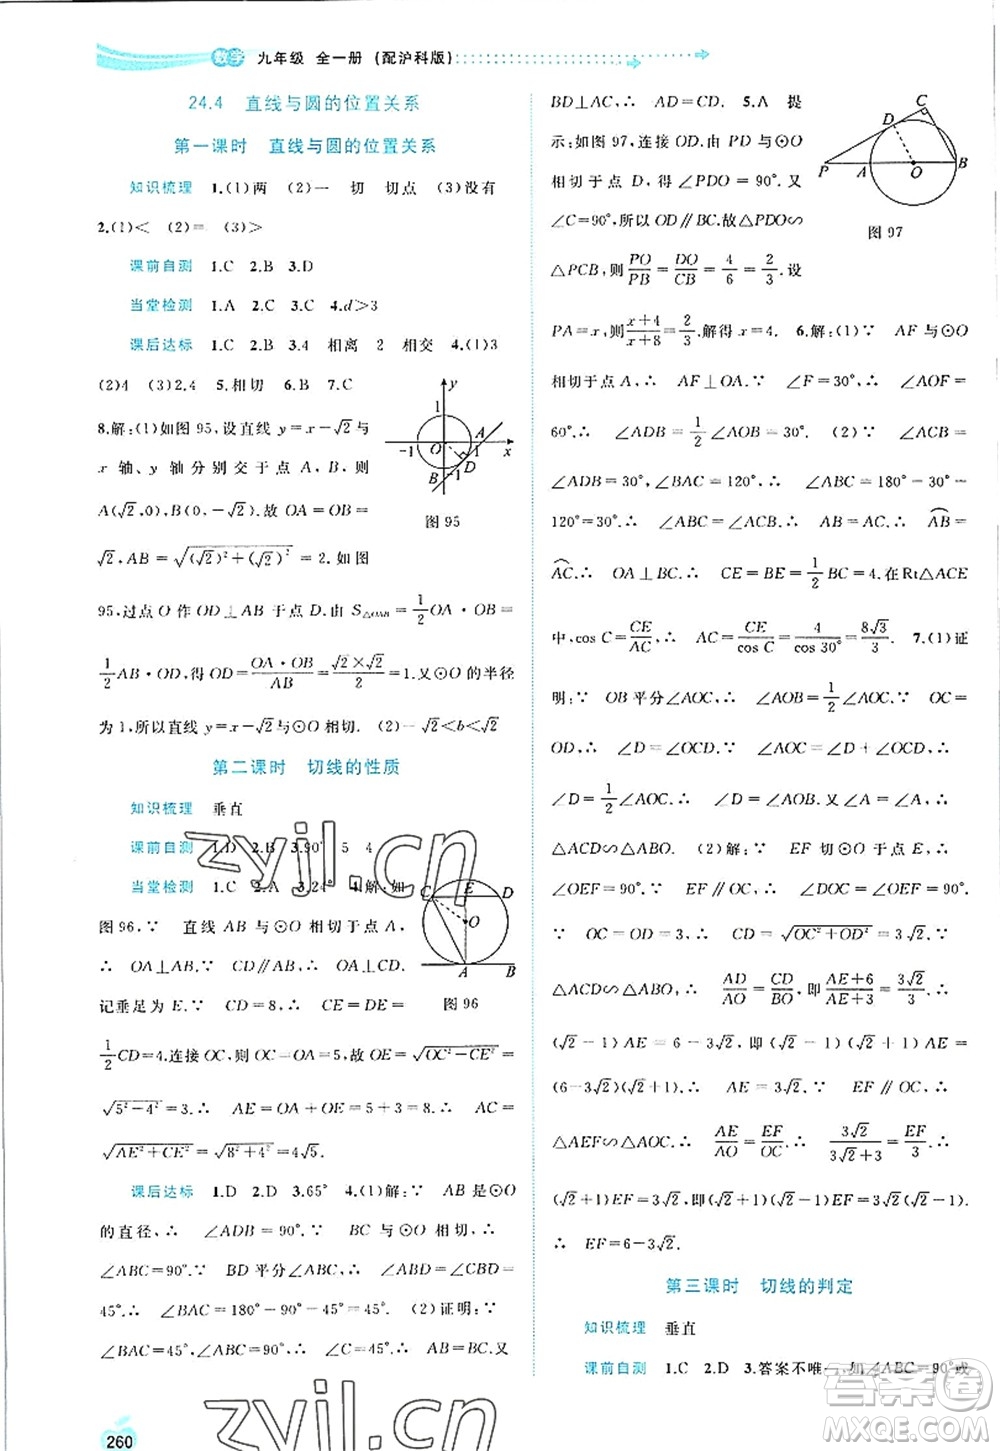 数学 九年级 全一册 (配沪科版)
24.4 直线与圆的位置关系
第一课时 直线与圆的位置关系
知识梳理 1.(1)两 (2)一 切 切点 (3)没有
2.(1)< (2)= (3)>
课前自测 1.C 2.B 3.D
当堂检测 1.A 2.C 3.C 4.d>3
课后达标 1.C 2.B 3.4 相离 2 相交 4.(1)3
(2)4 (3)2.4 5.相切 6.B 7.C
8.解:(1)如图 95,设直线 y=x-√2与
x 轴、y 轴分别交于点 A、B,则
A(√2,0),B(0,-√2).故 OA=OB=
√2,AB=√((√2)²+(√2)²)=2.如图
95,过点 O 作 OD⊥AB 于点 D.由 S△OAB=1/2 OA·OB=
1/2 AB·OD,得 OD=OA·OB/AB=√2×√2/2=1.又⊙O 的半径
为 1,所以直线 y=x-√2与⊙O 相切. (2)-√2<b<√2
y
1
A
-1
O
1
x
D
B
-1
图 95
第二课时 切线的性质
知识梳理 垂直
课前自测 1.D 2.B 3.90° 5 4
当堂检测 1.C 2.A 3.24° 4.解:如
图 96,∵ 直线 AB 与⊙O 相切于点 A,
∴ OA⊥AB.∵ CD∥AB,∴ OA⊥CD.
记垂足为 E.∵ CD=8,∴ CE=DE=
1/2 CD=4.连接 OC,则 OC=OA=5.∴ OE=√(OC²-CE²)=
√(5²-4²)=3.∴ AE=OA+OE=5+3=8.∴ AC=
√(AE²+CE²)=√(8²+4²)=4√5.
C E D
O
A B
图 96
课后达标 1.D 2.D 3.65° 4.(1)解:∵ AB 是⊙O
的直径,∴ ∠ADB=90°.∵ BC 与⊙O 相切,∴
∠ABC=90°.∵ BD 平分∠ABC,∴ ∠CBD=
45°.∴ ∠C=180°-90°-45°=45°. (2)证明:∵
∠BAC=45°,∠BCA=45°,∴ ∠BAC=∠BCA.∴
260
BD⊥AC,∴ AD=CD. 5.A 提
示:如图 97,连接 OD.∵ PC 与⊙O
相切于点 D,∴ ∠PDO=90°.又
∠C=90°,所以 OD∥BC.故△PDO∽
△PCB,则PO/PB=DO/CB=4/6=2/3.设
C
D
P A O B
图 97
PA=x,则(x+4)/(x+8)=2/3.解得 x=4. 6.解:(1)∵ AF 与⊙O
相切于点 A,∴ AF⊥OA.∵ ∠F=30°,∴ ∠AOF=
60°.∴ ∠ADB=1/2∠AOB=30°. (2)∵ ∠ACB=
∠ADB=30°,∠BAC=120°,∴ ∠ABC=180°-
120°-30°=30°.∴ ∠ABC=∠ACB.∴ AB=AC.∴ AB=
AC.∴ OA⊥BC.∴ CE=BE=1/2 BC=4.在 Rt△ACE
中,cos C=CE/AC,∴ AC=CE/cos C=4/cos 30°=8√3/3. 7.(1)证
明:∵ OB 平分∠AOC,∴ ∠AOB=1/2∠AOC.∵ OC=
OD,∴ ∠D=∠OCD.∵ ∠AOC=∠D+∠OCD,∴
∠D=1/2∠AOC.∴ ∠D=∠AOB.又∵ ∠A=∠A,∴
△ACD∽△ABO. (2)解:∵ EF 切⊙O 于点 E,∴
∠OEF=90°.∵ EF∥OC,∴ ∠DOC=∠OEF=90°.
∵ OC=OD=3,∴ CD=√(OC²+OD²)=3√2.∵
△ACD∽△ABO,∴ AD/AO=CD/BO,即(AE+6)/(AE+3)=3√2/3.∴
(√2-1)AE=6-3√2,即(√2-1)(√2+1)AE=
(6-3√2)(√2+1).∴ AE=3√2.∵ EF∥OC,∴
△AEF∽△AOC.∴ AE/AO=EF/OC.∴ 3√2/(3√2+3)=EF/3.∴
(√2+1)EF=3√2,即(√2+1)(√2-1)EF=3√2(√2-1).
∴ EF=6-3√2.
第三课时 切线的判定
知识梳理 垂直
课前自测 1.C 2.D 3.答案不唯一,如∠ABC=90°或
zyjl.cn
zyjl.cn
答案圈
MXQE.COM